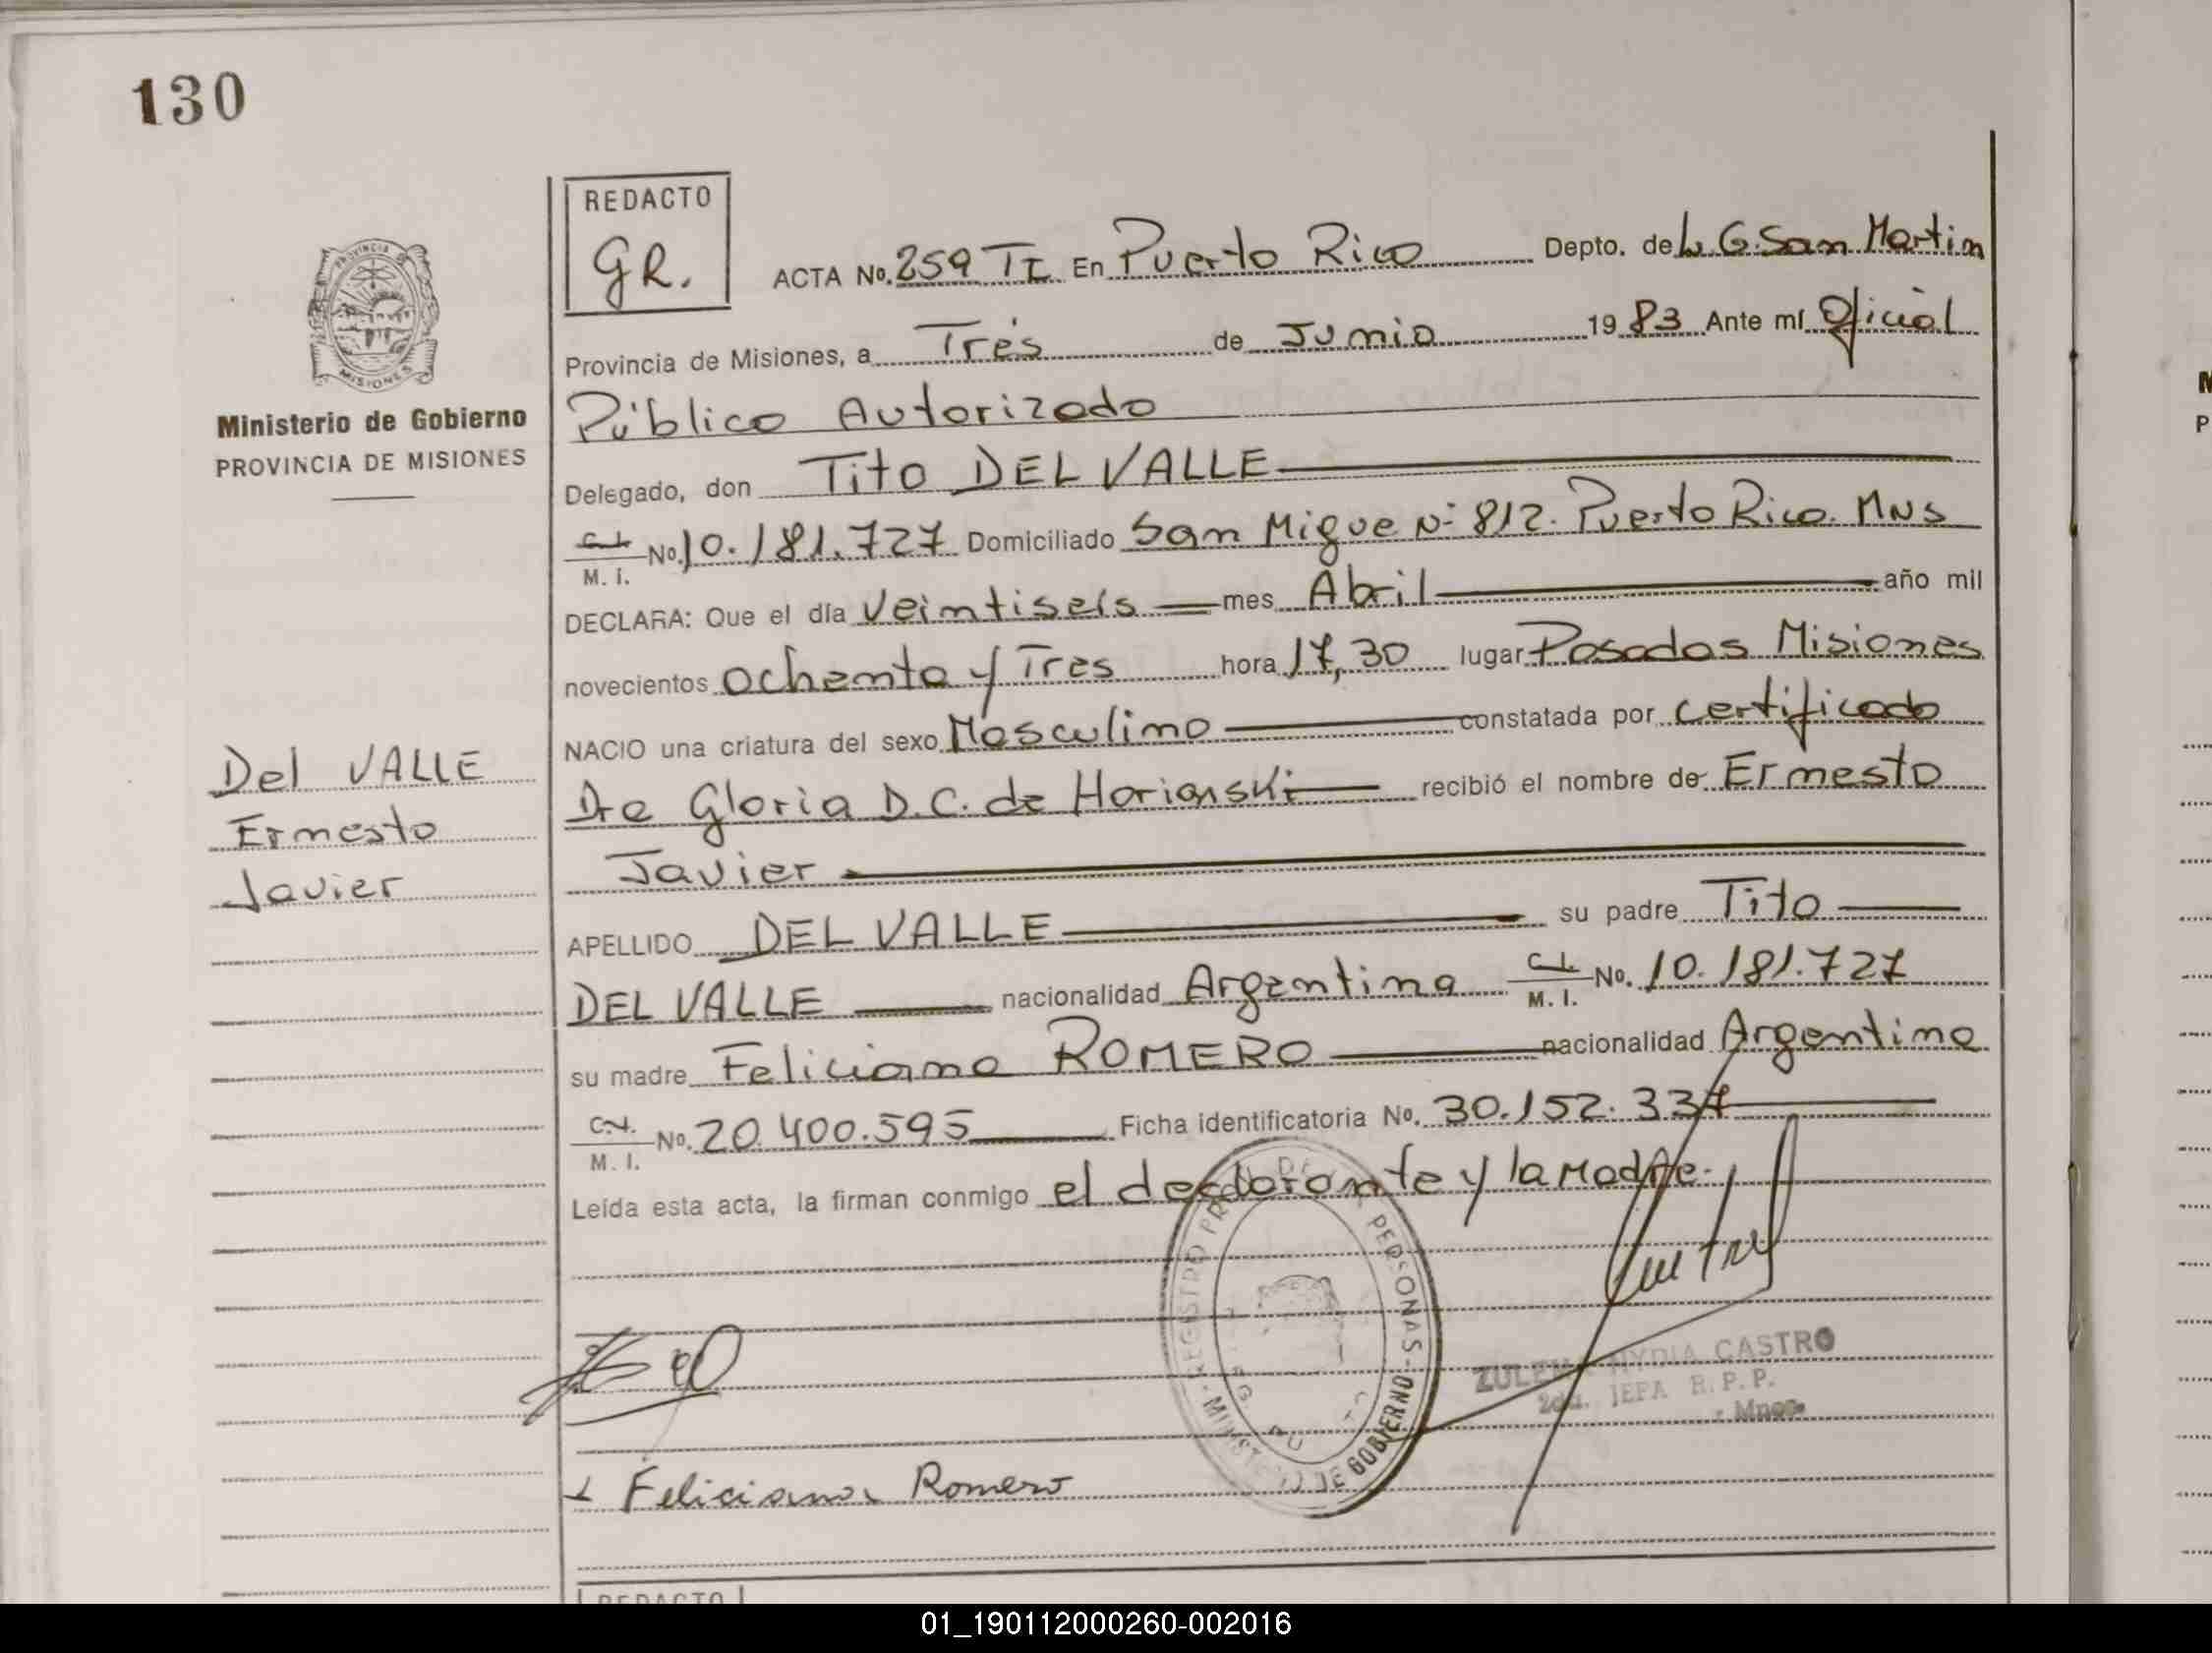 130
REDACTO
GR.
ACTA No. 259 TI En Puerto Rico Depto. de L. G. San Martin
Provincia de Misiones, a Tres de Junio 1983 Ante mí Oficial
Público Autorizado
Delegado, don Tito DEL VALLE
C.I. M. I. No. 10.181.727 Domiciliado San Migue Nº 812. Puerto Rico. MNS
DECLARA: Que el día veintiseis mes Abril año mil
novecientos ochenta y Tres hora 17,30 lugar Posadas Misiones
NACIO una criatura del sexo Masculino constatada por certificado
Dra Gloria D. C. de Horianski recibió el nombre de Ernesto
Javier
APELLIDO DEL VALLE su padre Tito
DEL VALLE nacionalidad Argentina C.I. M. I. No. 10.181.727
su madre Feliciana ROMERO nacionalidad Argentina
C.I. M. I. No. 20.400.595 Ficha identificatoria No. 30.152.337
Leída esta acta, la firman conmigo el declarante y la Madre.
Feliciana Romero
PROVINCIA
MISIONES
Ministerio de Gobierno
PROVINCIA DE MISIONES
Del VALLE
Ernesto
Javier
REGISTRO PERSONAS - MINISTERIO DE GOBIERNO
CASTRO
2da. JEFA R. P. P.
Mnes.
REDACTO
01_190112000260-002016